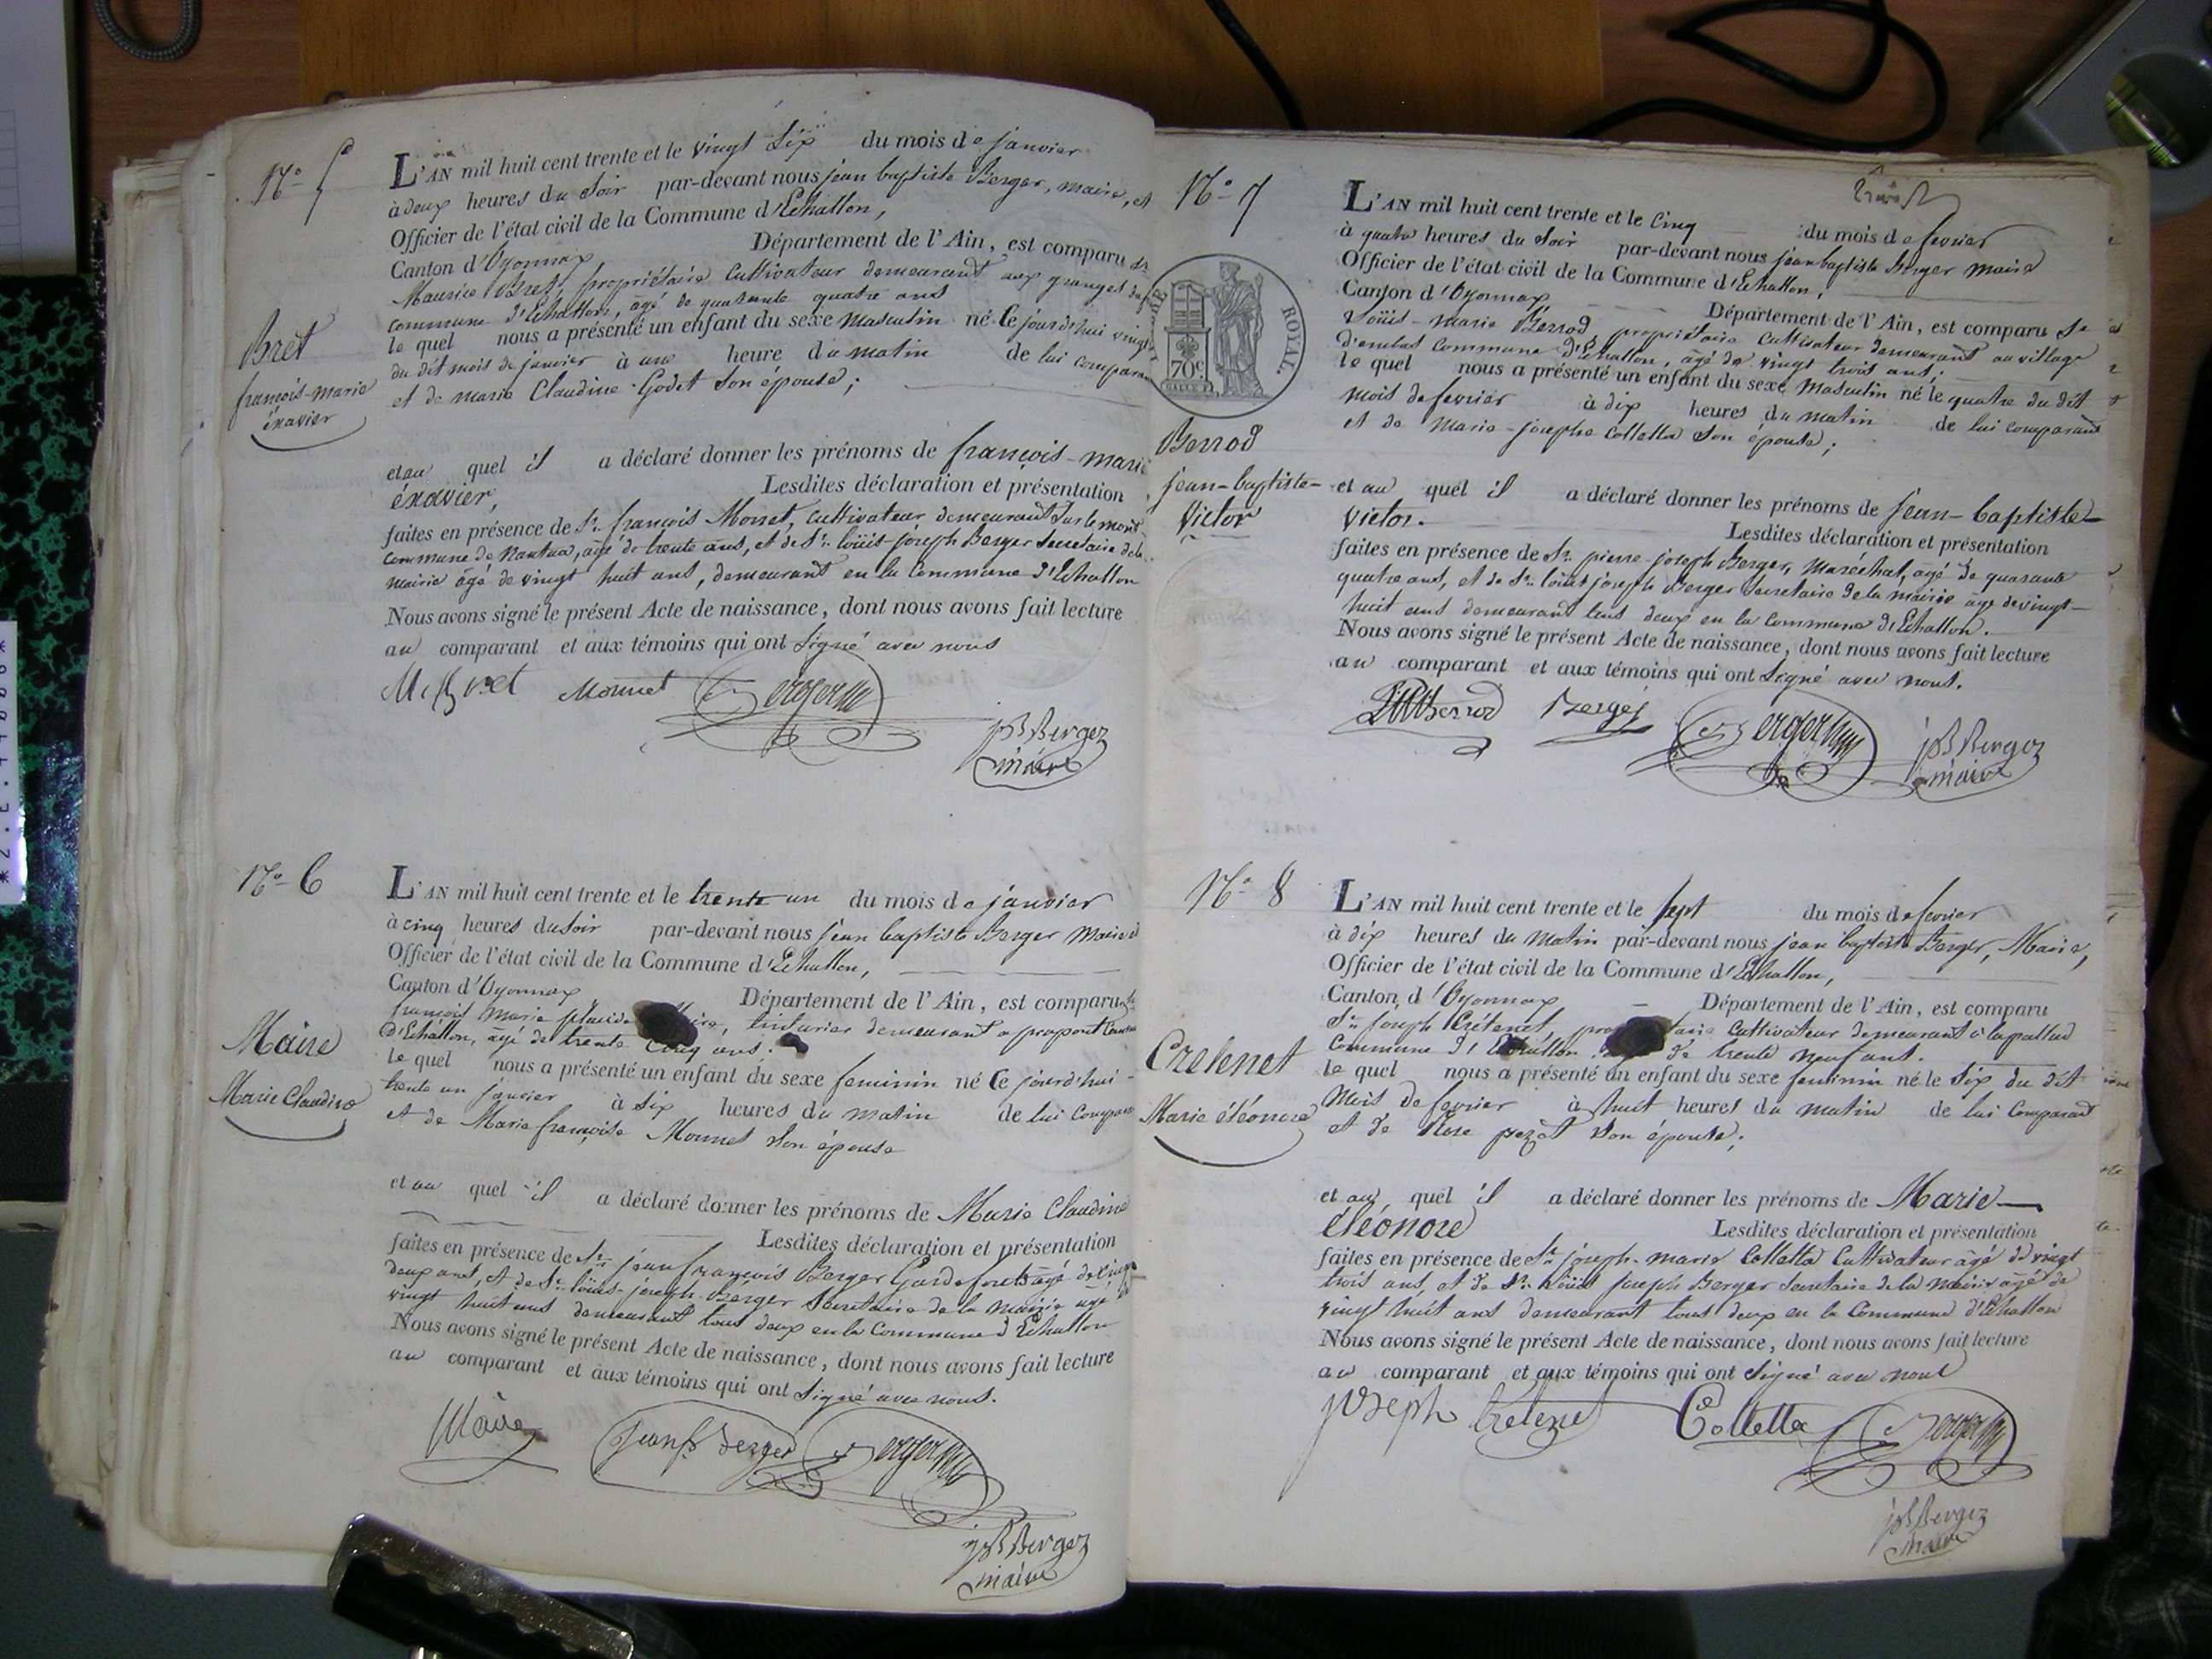 N.º 5
L'AN mil huit cent trente et le vingt six du mois de janvier
à deux heures du soir par-devant nous jean baptiste Berger, maire, et
Officier de l'état civil de la Commune d'Echallon,
Canton d'Oyonnax Département de l'Ain, est comparu sr
Maurice Bret, propriétaire cultivateur demeurant aux granges
commune d'Echallon, âgé de quarante quatre ans
le quel nous a présenté un enfant du sexe masculin né Ce jourd'hui vingt
du dit mois de janvier à une heure du matin de lui comparant
et de marie Claudine Godet son épouse;
Bret
françois-marie
éxavier
et au quel il a déclaré donner les prénoms de françois-marie
éxavier, Lesdites déclaration et présentation
faites en présence de Sr. françois Monnet, cultivateur demeurant sur le mont
commune de Nantua, âgé de trente ans, et de Sr. loüis-joseph Berger secretaire de la
mairie âgé de vingt huit ans, demeurant en la Commune d'Echallon
Nous avons signé le présent Acte de naissance, dont nous avons fait lecture
au comparant et aux témoins qui ont signé avec nous
Monnet Berger
jB Berger
maire
N.º 6
L'AN mil huit cent trente et le trente un du mois de janvier
à cinq heures du soir par-devant nous jean baptiste Berger Maire et
Officier de l'état civil de la Commune d'Echallon,
Canton d'Oyonnax Département de l'Ain, est comparu sr
françois Marie placide Maire, tinturier demeurant a prapont
d'Echallon, âgé de trente Cinq ans.
le quel nous a présenté un enfant du sexe feminin né Ce jourd'hui
trente un janvier à six heures du matin de lui Comparant
et de Marie françoise Monnet son épouse
Maire
Marie Claudine
et au quel il a déclaré donner les prénoms de Marie Claudine
Lesdites déclaration et présentation
faites en présence de Sr. jean françois Berger Garde forets âgé de
deux ans, et de Sr. loüis-joseph Berger secretaire de la mairie âgé de
vingt huit ans demeurant tous deux en la Commune d'Echallon
Nous avons signé le présent Acte de naissance, dont nous avons fait lecture
au comparant et aux témoins qui ont signé avec nous.
Maire jean fs Berger Berger
jB Berger
maire
N.º 7
L'AN mil huit cent trente et le Cinq du mois de fevrier
à quatre heures du soir par-devant nous jean baptiste Berger maire
Officier de l'état civil de la Commune d'Echallon,
Canton d'Oyonnax Département de l'Ain, est comparu Sr
Loüis-marie Berrod, propriétaire cultivateur demeurant au village
d'emblas commune d'Echallon, âgé de vingt trois ans;
le quel nous a présenté un enfant du sexe masculin né le quatre du dit
mois de fevrier à dix heures du matin de lui comparant
et de Marie-josephe Colletta son épouse;
ROYAL.
70c
Berrod
jean-baptiste-
Victor
et au quel il a déclaré donner les prénoms de jean-baptiste-
Victor. Lesdites déclaration et présentation
faites en présence de Sr. pierre-joseph Berger, maréchal, âgé de quarante
quatre ans, et de Sr. loüis joseph Berger secretaire de la mairie âgé de vingt-
huit ans demeurant tous deux en la commune d'Echallon.
Nous avons signé le présent Acte de naissance, dont nous avons fait lecture
au comparant et aux témoins qui ont signé avec nous.
Berrod Berger Berger jB Berger
maire
N.º 8
L'AN mil huit cent trente et le sept du mois de fevrier
à dix heures du matin par-devant nous jean baptiste Berger, Maire,
Officier de l'état civil de la Commune d'Echallon,
Canton d'Oyonnax Département de l'Ain, est comparu
Sr. joseph Crétenet, cultivateur demeurant à lapallud
Commune d'Echallon de trente neuf ans.
le quel nous a présenté un enfant du sexe feminin né le six du dit
mois de fevrier à huit heures du matin de lui Comparant
et de Rose pezet son épouse;
Cretenet
Marie éléonore
et au quel il a déclaré donner les prénoms de Marie
éléonore Lesdites déclaration et présentation
faites en présence de Sr. joseph-marie Colletta Cultivateur âgé de vingt
trois ans, et de Sr. Loüis joseph Berger secretaire de la mairie âgé de
vingt huit ans demeurant tous deux en la Commune d'Echallon
Nous avons signé le présent Acte de naissance, dont nous avons fait lecture
au comparant et aux témoins qui ont signé avec nous
joseph Cretenet Colletta Berger
jB Berger
maire